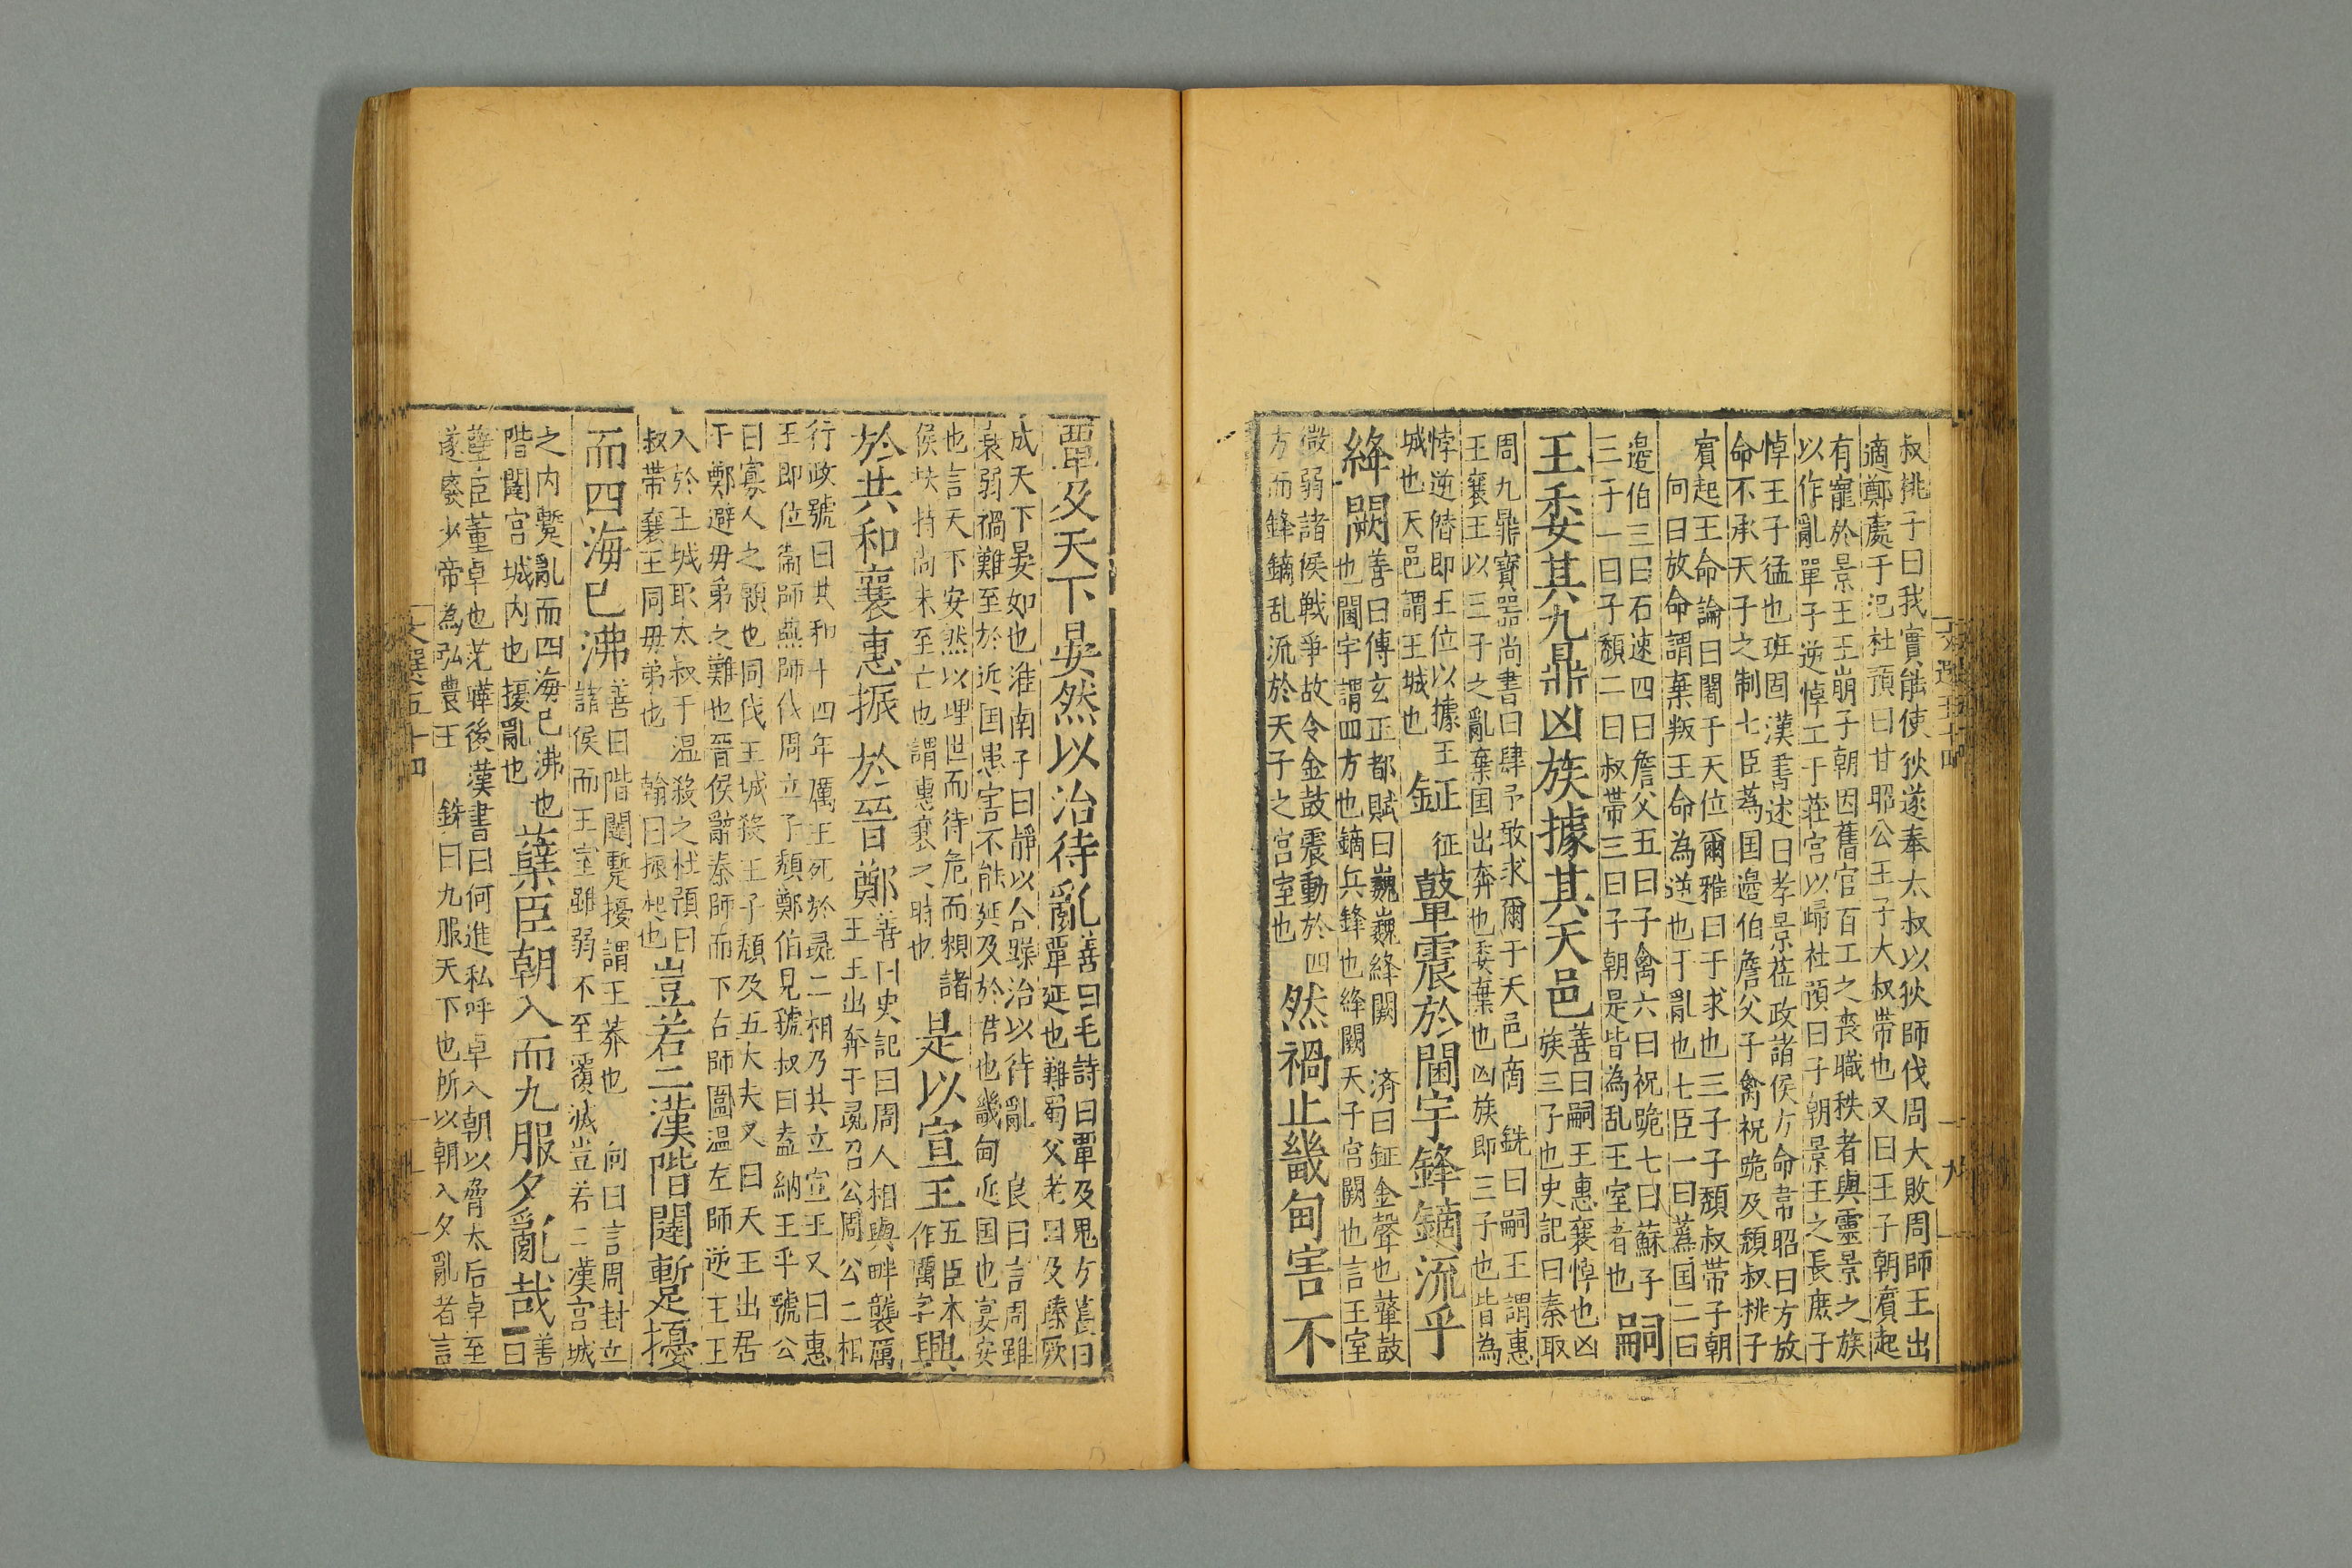 叔桃子曰我實能使狄遂奉太叔以狄師伐周大敗周師王出
適鄭處于氾杜預曰甘昭公王子大叔帶也又曰王子朝賓起
有寵於景王王崩子朝因舊官百工之喪職秩者與靈景之族
以作亂單子逆悼王于莊宮以歸杜預曰子朝景王之長庶子
悼王子猛也班固漢書述曰孝景莅政諸侯方命韋昭曰方放
命不承天子之制七臣蔿国邉伯詹父子禽祝跪及頽叔桃子
賓起王命論曰闇于天位爾雅曰干求也三子子頽叔帶子朝
向曰放命謂棄叛王命為逆也丁亂也七臣一曰蔿国二曰
邉伯三曰石速四曰詹父五曰子禽六曰祝跪七曰蘇子
三子一曰子頽二曰叔帶三曰子朝是皆為乱王室者也
嗣
王委其九鼎凶族據其天邑
善曰嗣王惠襄悼也凶
族三子也史記曰秦取
周九鼎寶器尚書曰肆予敢求爾于天邑商　銑曰嗣王謂惠
王襄王以三子之亂棄国出奔也委棄也凶族即三子也皆為
悖逆僭即王位以據王
城也天邑謂王城也
鉦
征
鼙震於閫宇鋒鏑流乎
絳闕
善曰傳玄正都賦曰巍巍絳闕　済曰鉦金聲也鼙鼓
也閫宇謂四方也鏑兵鋒也絳闕天子宮闕也言王室
微弱諸侯戦爭故令金鼓震動於四
方而鋒鏑乱流於天子之宮室也
然禍止畿甸害不
覃及天下晏然以治待亂
善曰毛詩曰覃及鬼方萇曰
覃延也難蜀父老曰及臻厥
成天下晏如也淮南子曰靜以合躁治以待亂　良曰言周雖
衰弱禍難至於近国患害不能延及於諸也畿甸近国也宴安
也言天下安然以理世而待危而頼諸
侯扶持尚未至亡也謂惠襄之時也
是以宣王
五臣本
作厲字
興
於共和襄惠振於晉鄭
善曰史記曰周人相與畔襲厲
王王出奔于彘召公周公二相
行政號曰共和十四年厲王死於彘二相乃共立宣王又曰惠
王即位衛師燕師伐周立子頽鄭伯見虢叔曰盍納王乎虢公
曰寡人之願也同伐王城殺王子頽及五大夫又曰天王出居
于鄭避毋弟之難也晉侯辭秦師而下右師圍温左師逆王王
入於王城取太叔于温殺之杜預曰
叔帶襄王同毋弟也　翰曰振起也
豈若二漢階闥暫擾
而四海已沸
善曰階闥蹔擾謂王莽也　向曰言周封立
諸侯而王室雖弱不至覆滅豈若二漢宮城
之内蹔亂而四海已沸也
階闥宮城内也擾亂也
孽臣朝入而九服夕亂哉
善曰
孽臣董卓也范曄後漢書曰何進私呼卓入朝以脅太后卓至
遂廢少帝為弘農王　銑曰九服天下也所以朝入夕亂者言
文選五十四
九